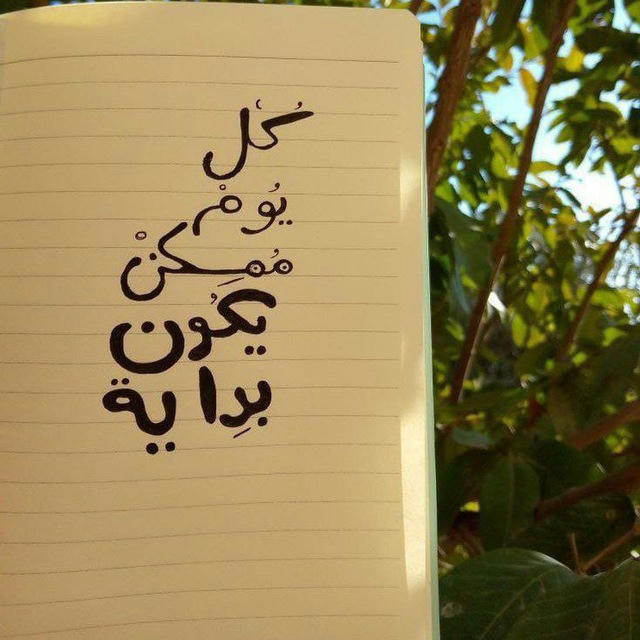 كُل
يُومْ
مُمِكنْ
يكُون
بِداية